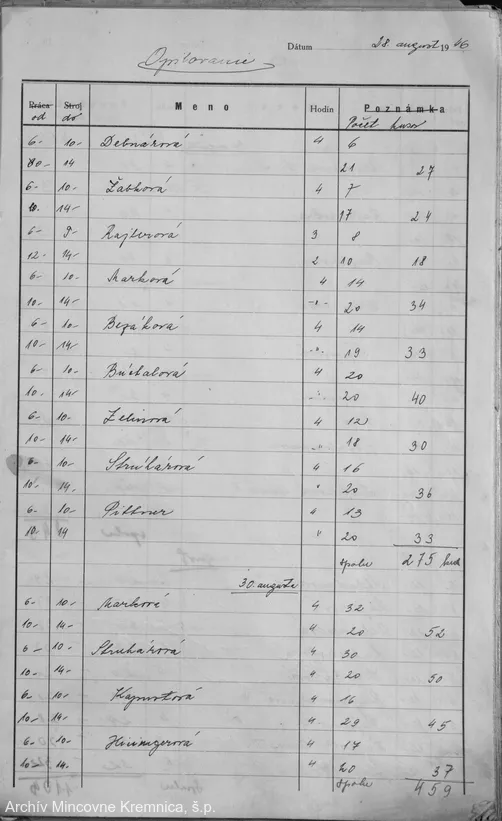 Dátum 28. august 1946
Opilovanie
Práca Stroj Meno Hodín Poznámka
od do Počet kusov
6- 10- Debnárová 4 6
10- 14 21 27
6- 10- Žabková 4 7
10. 14- 17 24
6- 9- Rajterová 3 8
12- 14- 2 10 18
6- 10- Marková 4 14
10- 14- -"- 20 34
6- 10- Bezáková 4 14
10- 14- -"- 19 33
6- 10- Búčtalová 4 20
10. 14- -"- 20 40
6- 10- Zelinová 4 12
10- 14- -"- 18 30
6- 10- Struhárová 4 16
10- 14. " 20 36
6- 10- Pittner 4 13
10- 14 " 20 33
spolu 275 kusov
30. augusta
6- 10- Marková 4 32
10- 14- 4 20 52
6- 10- Struhárová 4 30
10- 14- 4 20 50
6- 10- Kapustová 4 16
10- 14- 4 29 45
6- 10- Hiningerová 4 17
10- 14. 4 20 37
spolu 459
Archív Mincovne Kremnica, š.p.